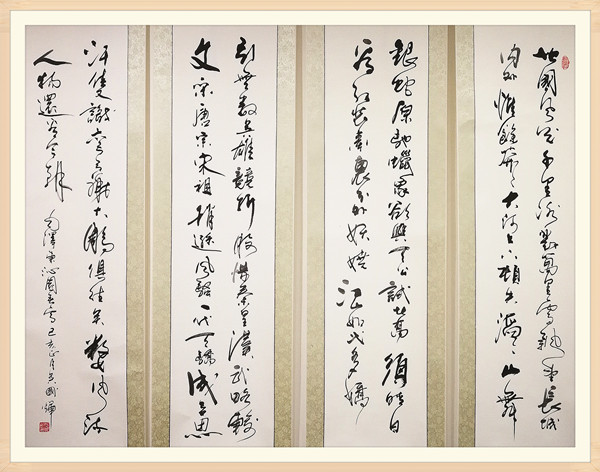 北國風光千里冰封萬里雪飄望長城
内外惟餘莽々大河上下頓失滔々山舞
銀蛇原馳蠟象欲與天公試比高須晴日
看紅裝素裹分外妖嬈江山如此多嬌
引無數英雄競折腰惜秦皇漢武略輸
文采唐宗宋祖稍遜風騷一代天驕成吉思
汗隻識彎弓射大鵰俱往矣數風流
人物還看今朝
毛澤東沁園春雪己亥正月